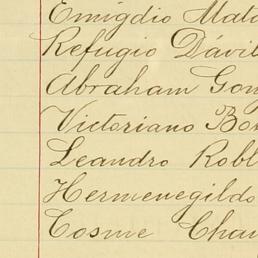 Emigdio Mata
Refugio Dávil
Abraham Gon
Victoriano Bo
Leandro Robl
Hermenegildo
Cosme Chav